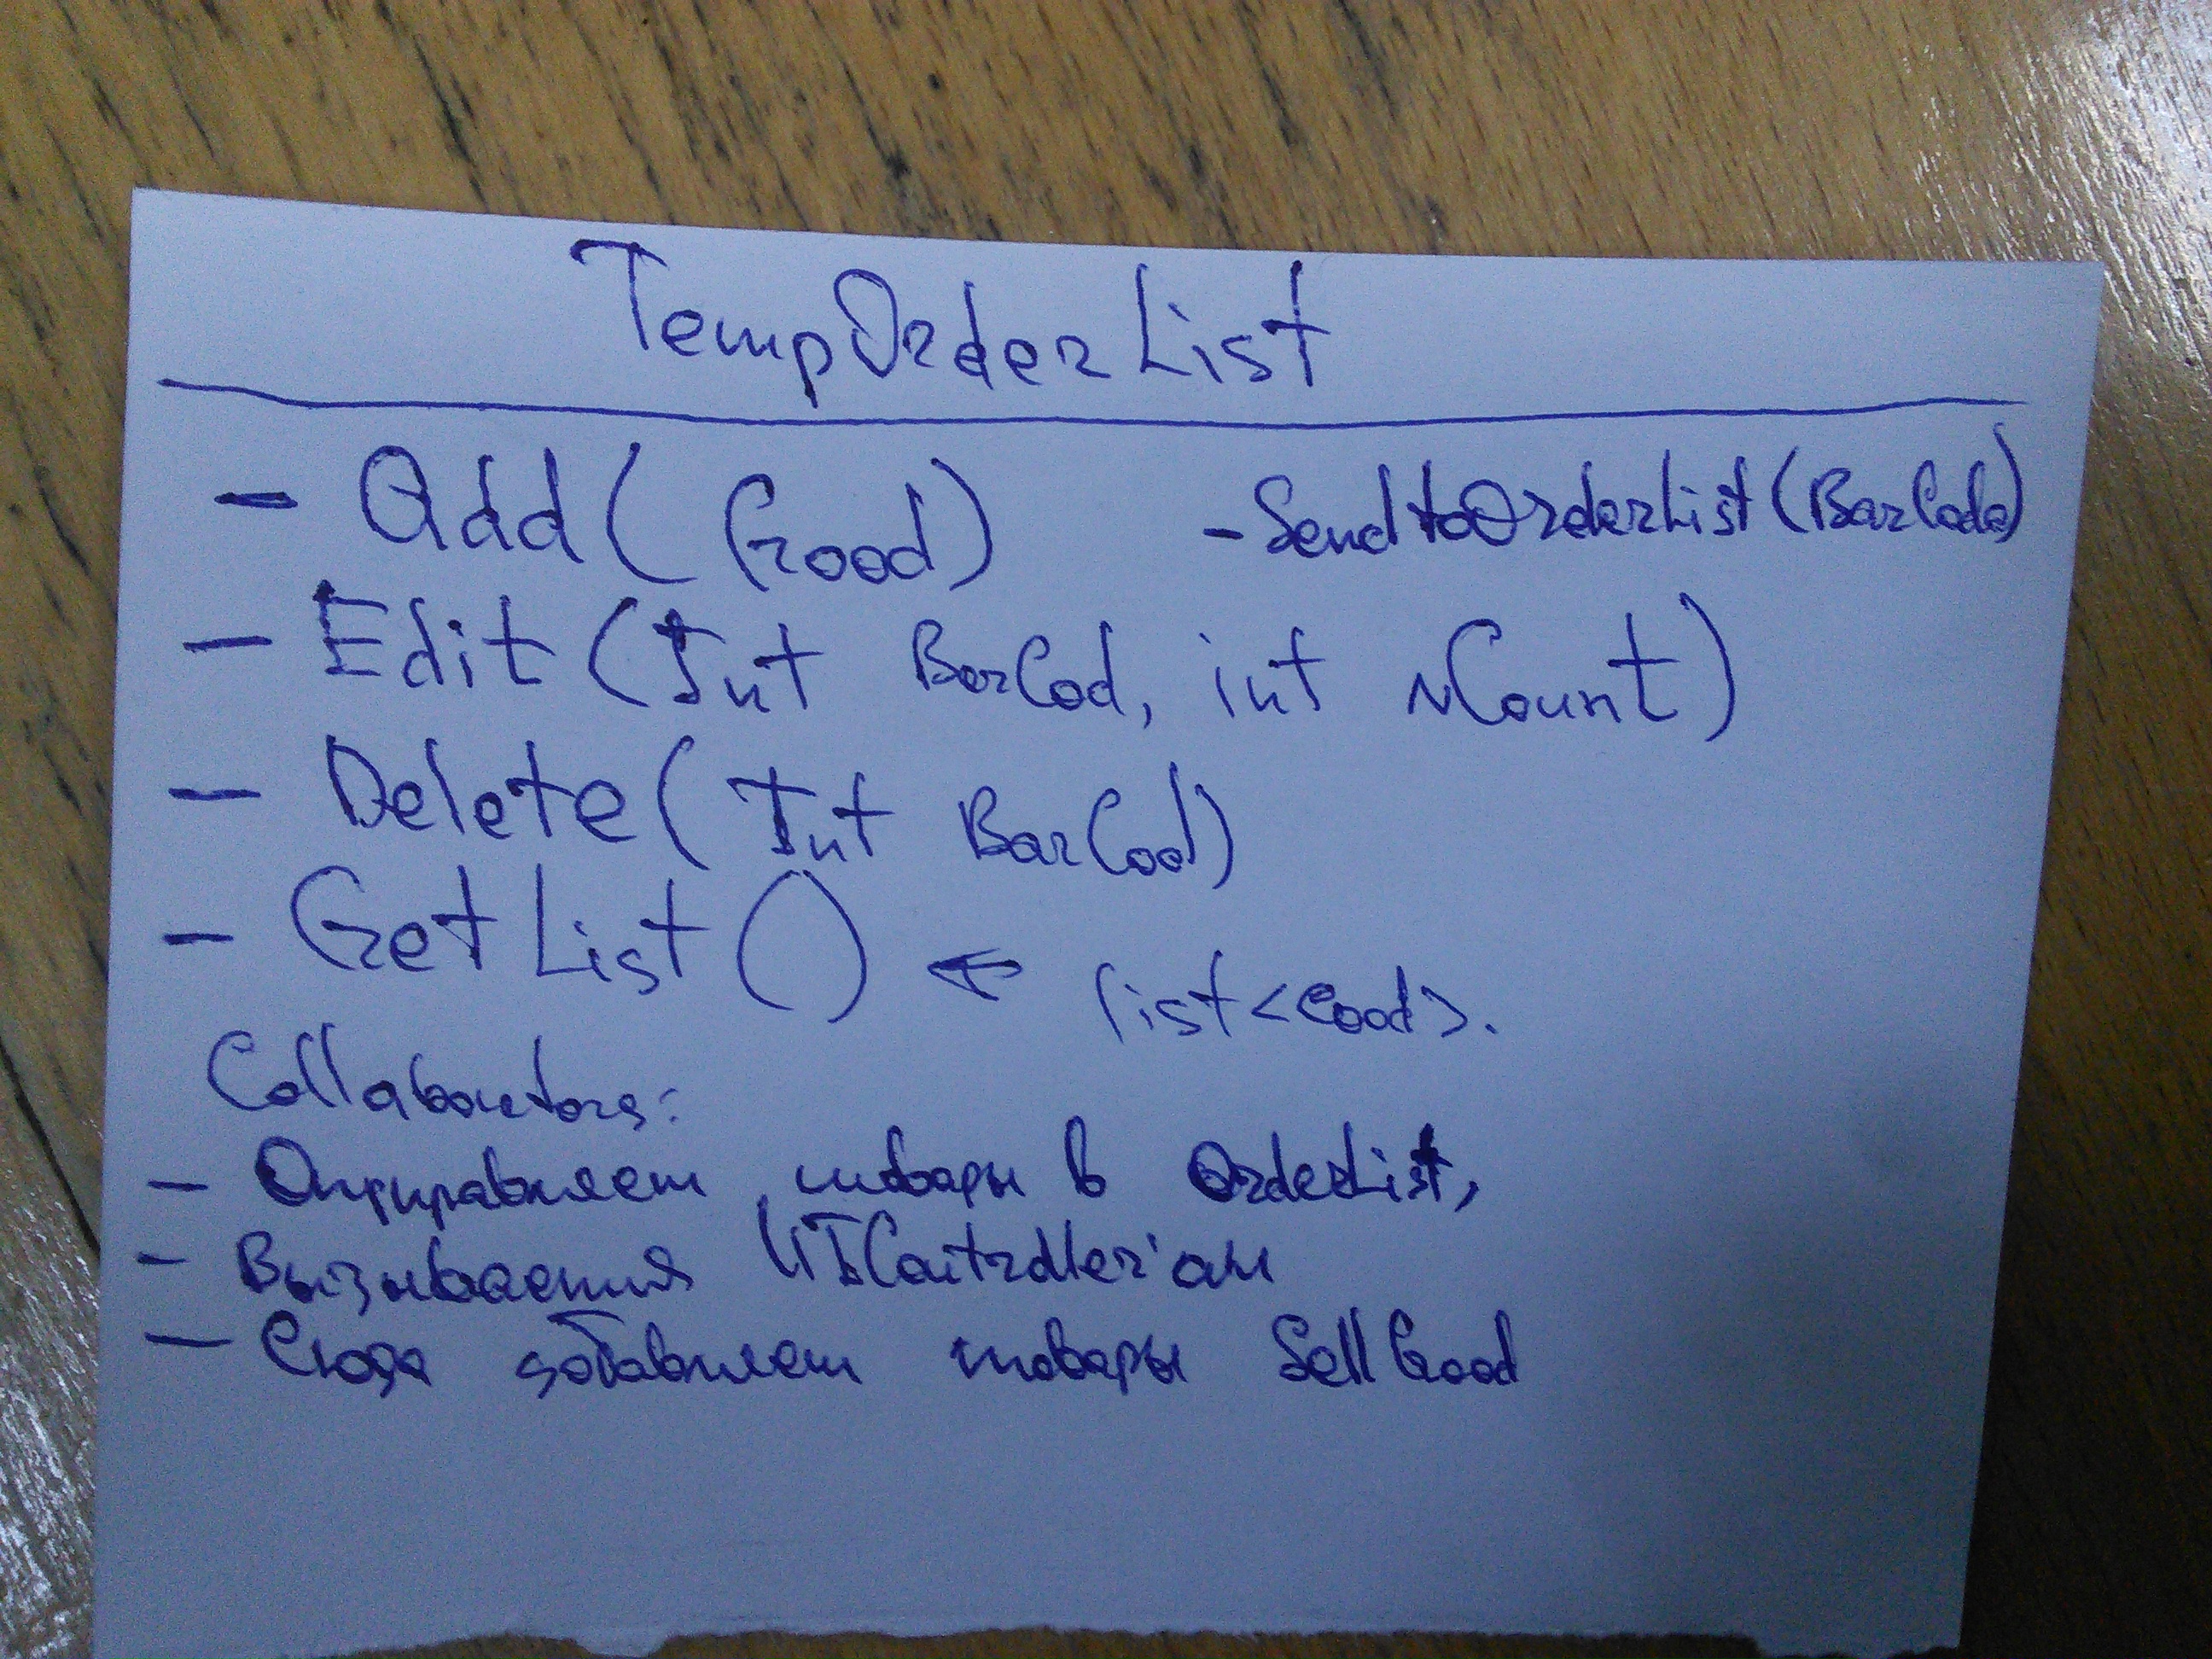 TempOrderList
- Add( Good) - SendtoOrderList(BarCode)
- Edit (Int BarCod, int nCount)
- Delete( Int BarCod)
- GetList() ← list<Good>.
Collaborators:
- Отправляет товары в OrderList,
- Вызывается Controller'ом
- Сюда добавляет товары SellGood